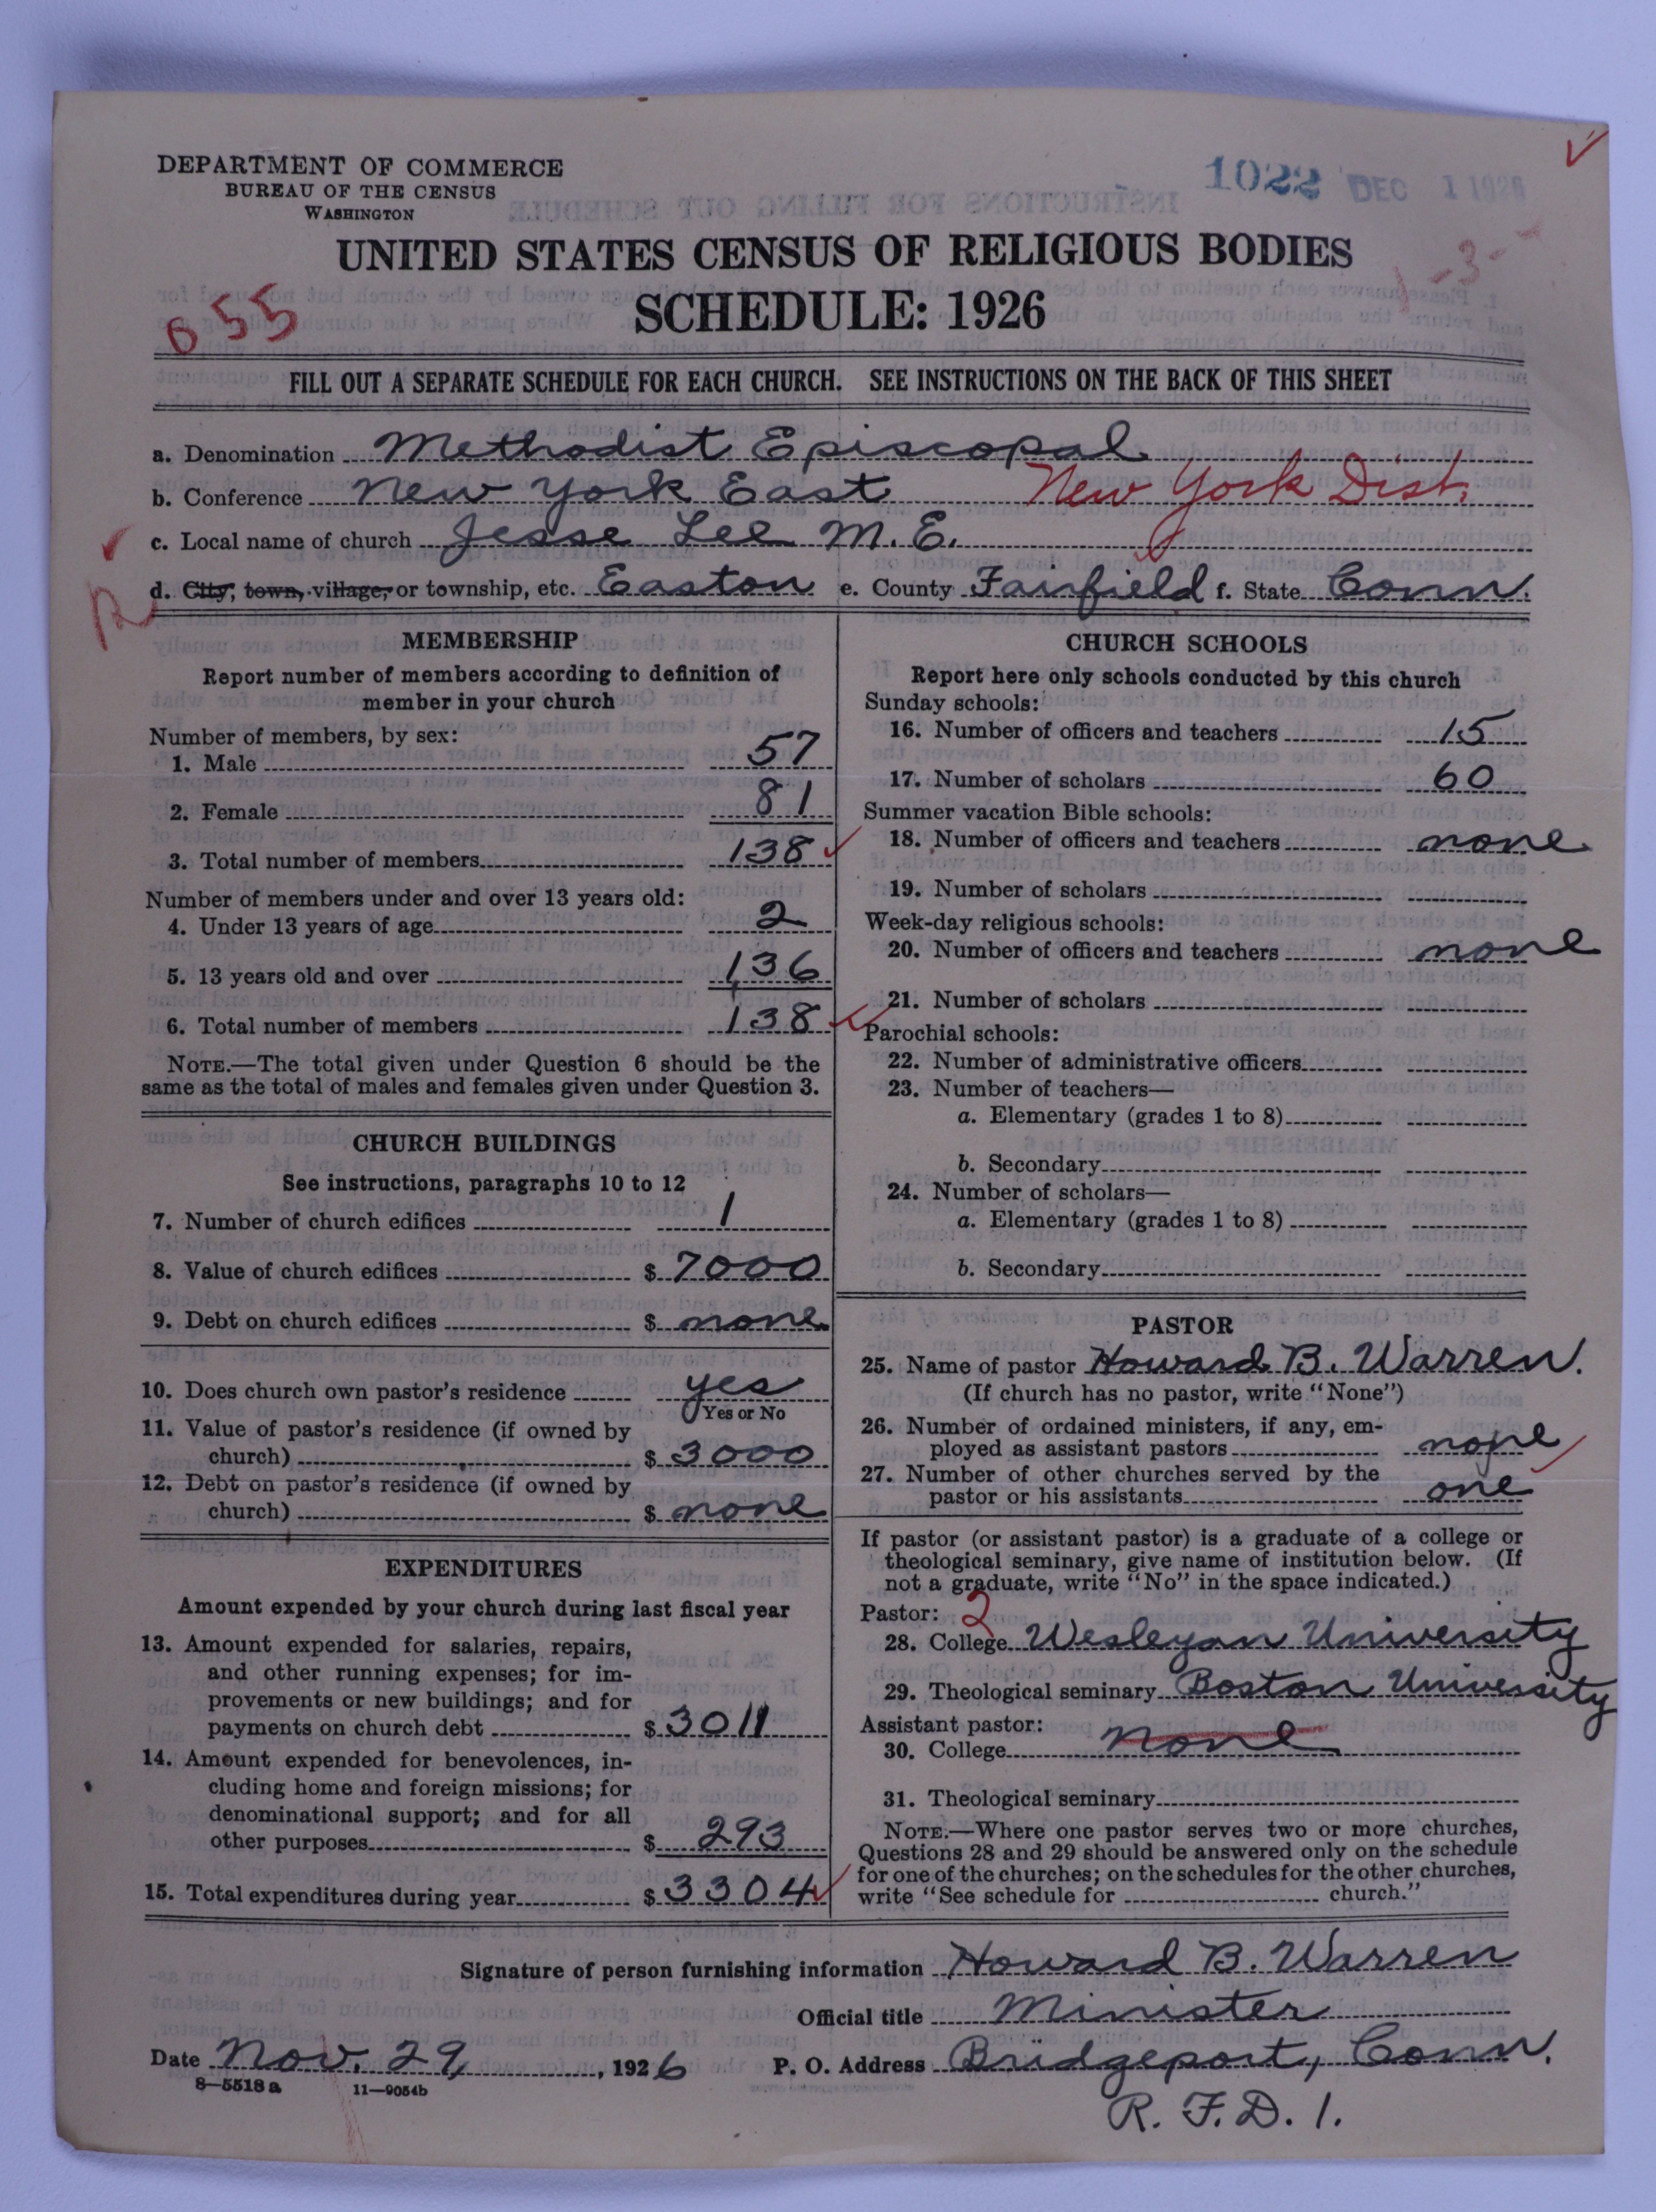 DEPARTMENT OF COMMERCE
BUREAU OF THE CENSUS
WASHINGTON
1022 DEC 1 1926
UNITED STATES CENSUS OF RELIGIOUS BODIES
SCHEDULE: 1926
655
-3-
FILL OUT A SEPARATE SCHEDULE FOR EACH CHURCH. SEE INSTRUCTIONS ON THE BACK OF THIS SHEET
a. Denomination Methodist Episcopal
b. Conference New York East New York Dist.
c. Local name of church Jesse Lee M.E.
R
d. City, town, village, or township, etc. Easton e. County Fairfield f. State Conn.
MEMBERSHIP
Report number of members according to definition of
member in your church
Number of members, by sex:
1. Male 57
2. Female 81
3. Total number of members 138
Number of members under and over 13 years old:
4. Under 13 years of age 2
5. 13 years old and over 136
6. Total number of members 138
NOTE.—The total given under Question 6 should be the
same as the total of males and females given under Question 3.
CHURCH BUILDINGS
See instructions, paragraphs 10 to 12
7. Number of church edifices 1
8. Value of church edifices $ 7000
9. Debt on church edifices $ none
10. Does church own pastor's residence yes
Yes or No
11. Value of pastor's residence (if owned by
church) $ 3000
12. Debt on pastor's residence (if owned by
church) $ none
EXPENDITURES
Amount expended by your church during last fiscal year
13. Amount expended for salaries, repairs,
and other running expenses; for im-
provements or new buildings; and for
payments on church debt $ 3011
14. Amount expended for benevolences, in-
cluding home and foreign missions; for
denominational support; and for all
other purposes $ 293
15. Total expenditures during year $ 3304
CHURCH SCHOOLS
Report here only schools conducted by this church
Sunday schools:
16. Number of officers and teachers 15
17. Number of scholars 60
Summer vacation Bible schools:
18. Number of officers and teachers none
19. Number of scholars
Week-day religious schools:
20. Number of officers and teachers none
21. Number of scholars
Parochial schools:
22. Number of administrative officers
23. Number of teachers—
a. Elementary (grades 1 to 8)
b. Secondary
24. Number of scholars—
a. Elementary (grades 1 to 8)
b. Secondary
PASTOR
25. Name of pastor Howard B. Warren.
(If church has no pastor, write "None")
26. Number of ordained ministers, if any, em-
ployed as assistant pastors none
27. Number of other churches served by the
pastor or his assistants one
If pastor (or assistant pastor) is a graduate of a college or
theological seminary, give name of institution below. (If
not a graduate, write "No" in the space indicated.)
Pastor: 2
28. College Wesleyan University
29. Theological seminary Boston University
Assistant pastor:
30. College none
31. Theological seminary
NOTE.—Where one pastor serves two or more churches,
Questions 28 and 29 should be answered only on the schedule
for one of the churches; on the schedules for the other churches,
write "See schedule for church."
Signature of person furnishing information Howard B. Warren
Official title Minister
Date Nov. 29, 1926 P. O. Address Bridgeport, Conn.
8—5518 a 11—9054b
R. F. D. 1.